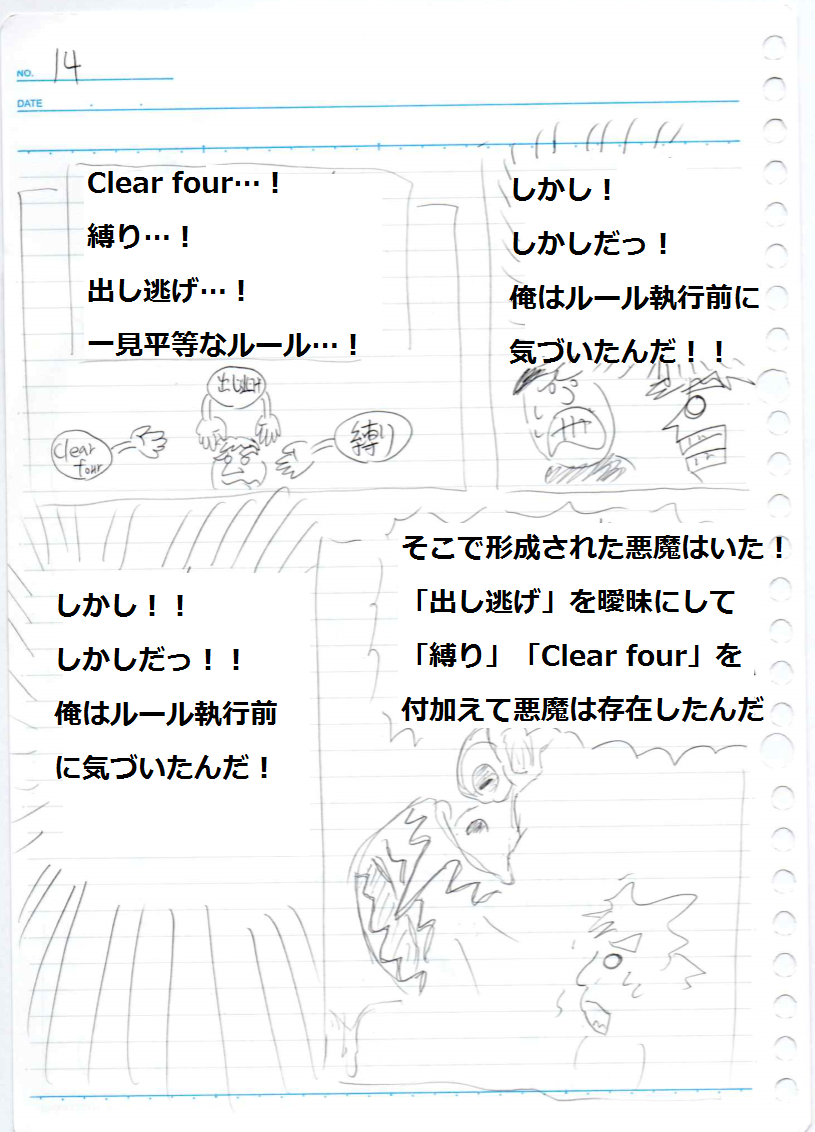 NO. 14
DATE
Clear four…！
縛り…！
出し逃げ…！
一見平等なルール…！
出し逃げ
Clear
four
縛り
しかし！
しかしだっ！
俺はルール執行前に
気づいたんだ！！
しかし！！
しかしだっ！！
俺はルール執行前
に気づいたんだ！
そこで形成された悪魔はいた！
「出し逃げ」を曖昧にして
「縛り」「Clear four」を
付加えて悪魔は存在したんだ